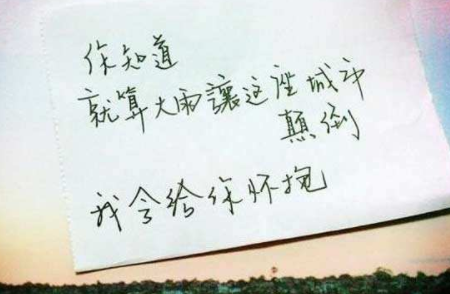 你知道
就算大雨讓这座城市
颠倒
我会给你怀抱